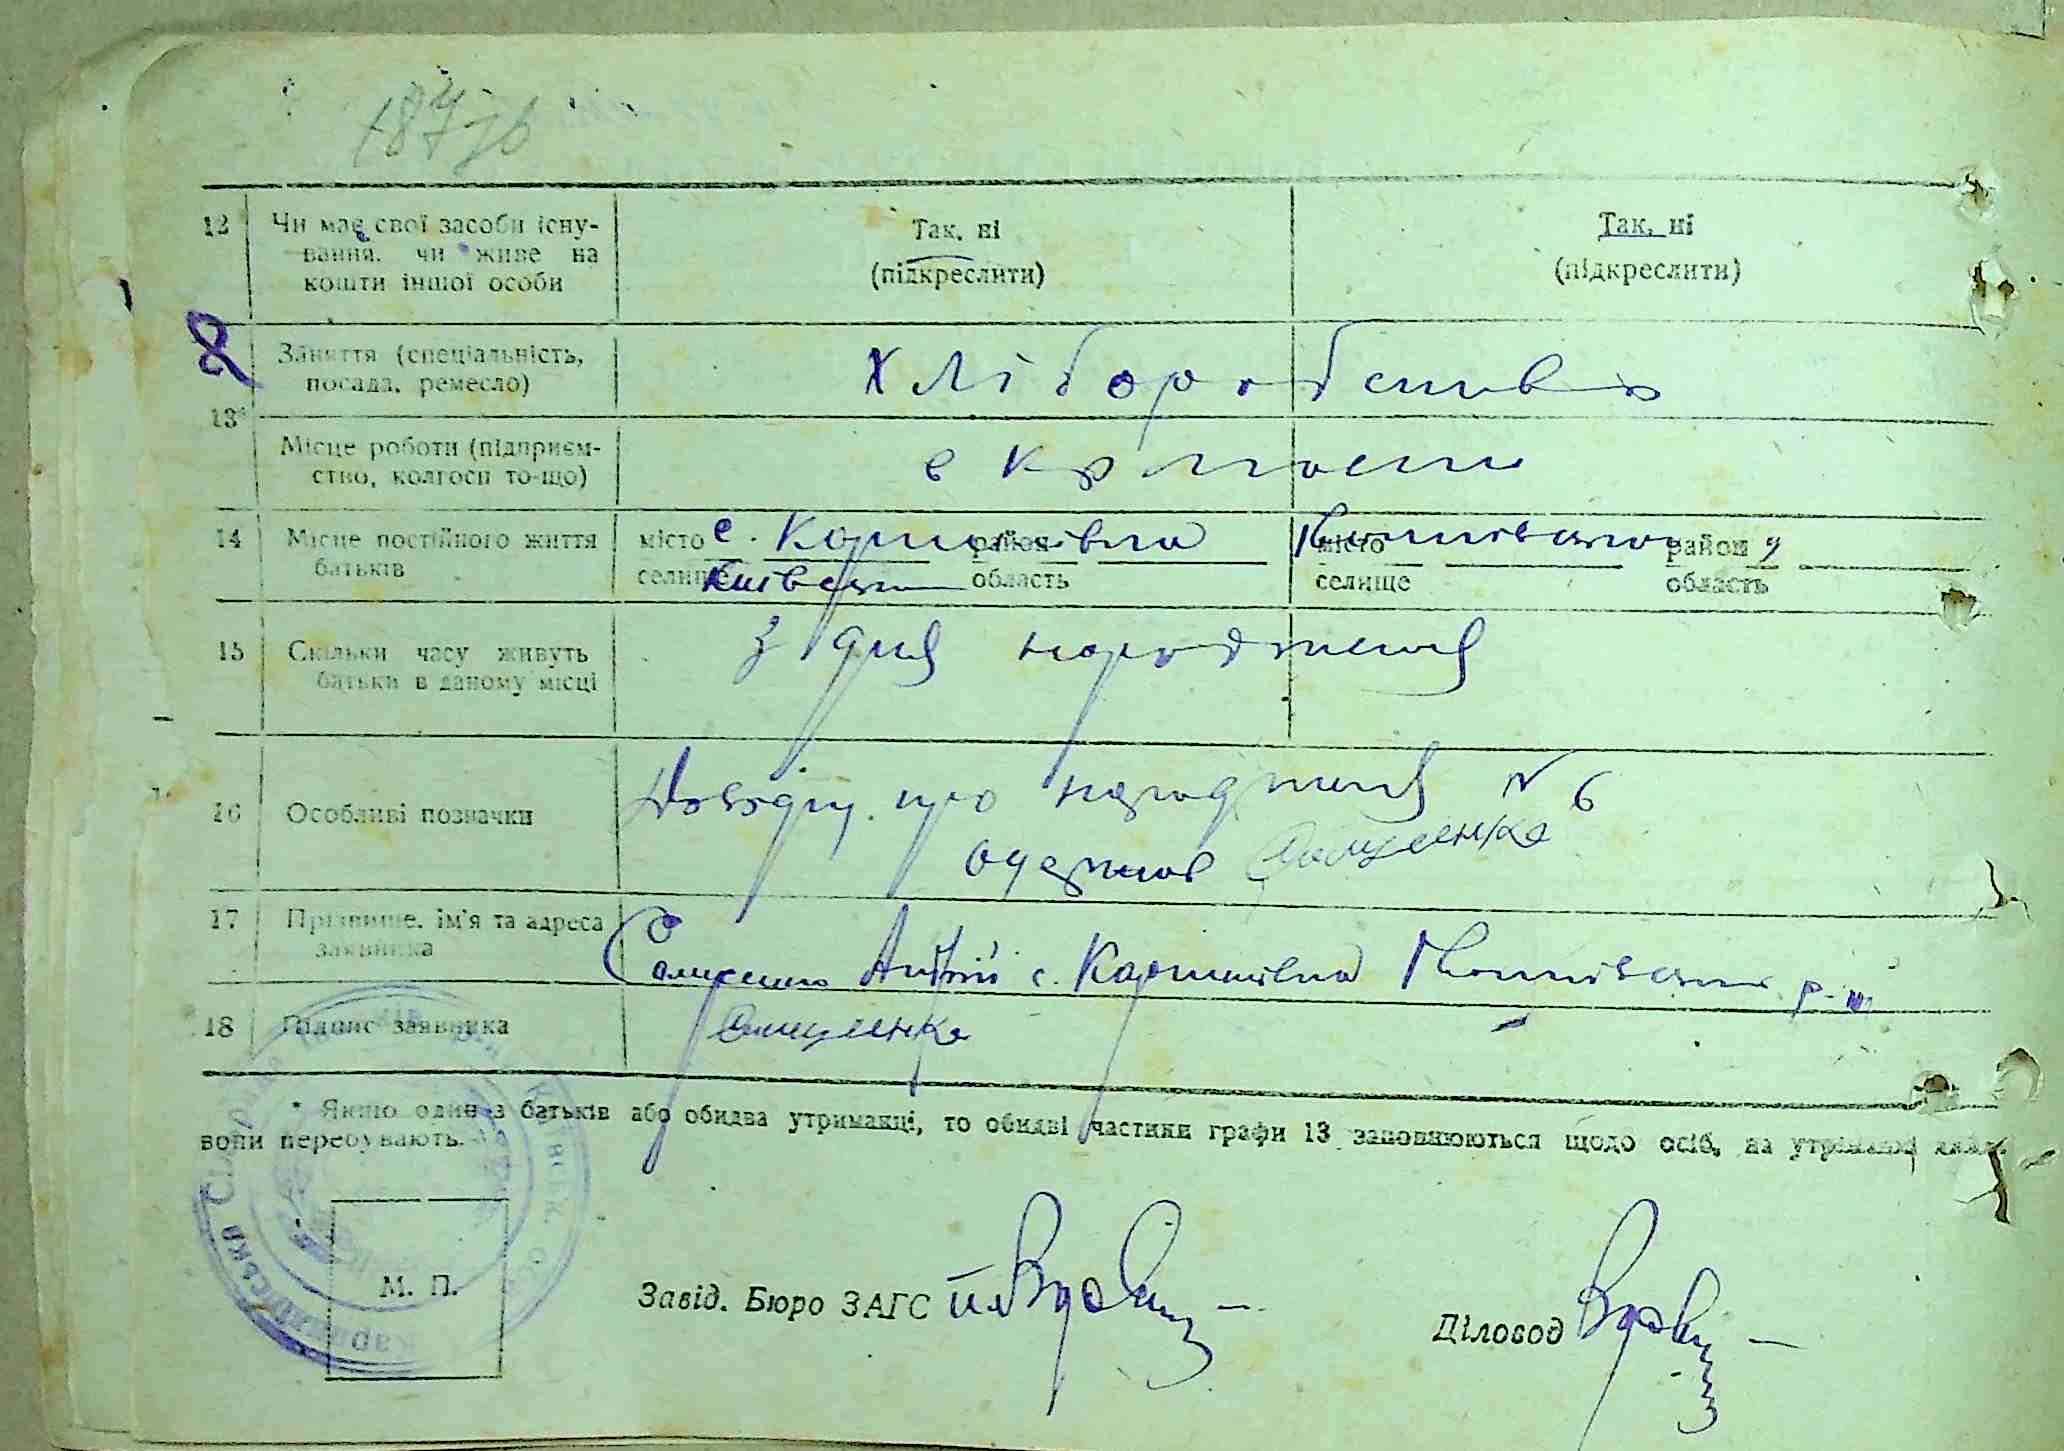 187зв
12 Чи має свої засоби існу-
вання, чи живе на
кошти іншої особи
Так, ні
(підкреслити)
Так, ні
(підкреслити)
13* Заняття (спеціальність,
посада, ремесло)
Хліборобство
Місце роботи (підприєм-
ство, колгосп то-що)
в колгоспі
14 Місце постійного життя
батьків
місто с. район
селище Київська область
місто район
селище область
15 Скільки часу живуть
батьки в даному місці
з дня народження
16 Особливі позначки
Довідку про народження № 6
одержав
17 Прізвище, ім'я та адреса
заявника
с. р-ну
18 Підпис заявника
* Якщо один з батьків або обидва утриманці, то обидві частини графи 13 заповнюються щодо осіб, на утриманні яких
вони перебувають.
М. П.
Завід. Бюро ЗАГС
Діловод